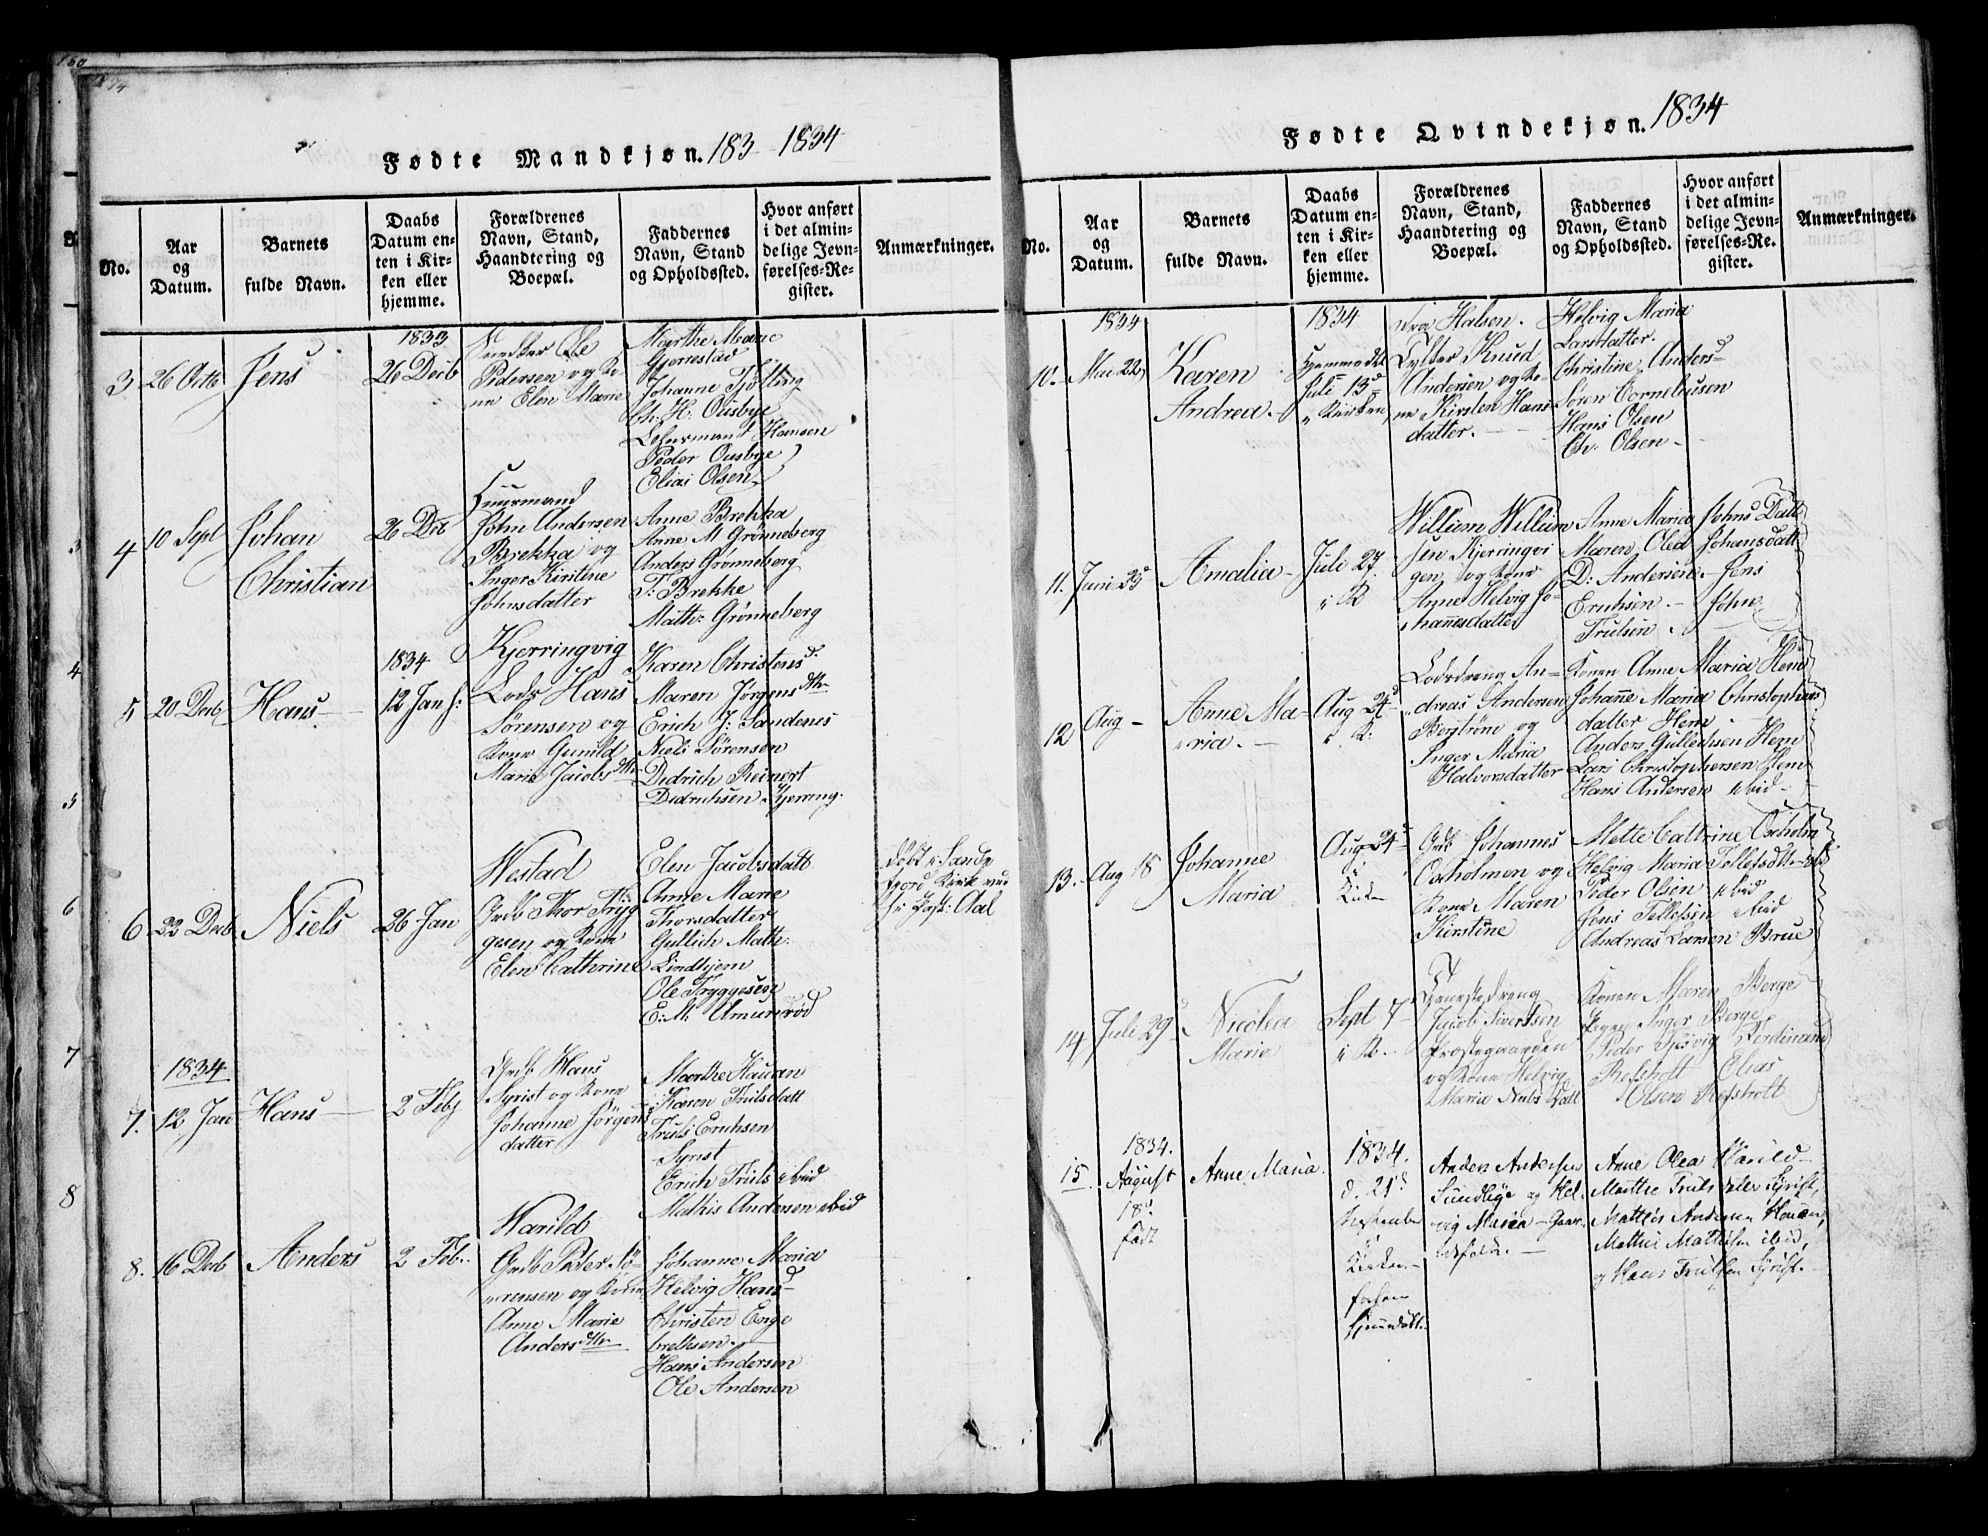 Fødte Mandkjøn. 183 1834
No.
Aar og Datum.
Barnets fulde Navn.
Daabs Datum enten i Kirken eller hjemme.
Forældrenes Navn, Stand, Haandtering og Boepæl.
Faddernes Navn, Stand og Opholdssted.
Hvor anført i det almindelige Jevnførelses-Register.
Anmærkninger.
3
26 Octb
Jens
1833
26 Decb
Ole
Pedersen og Ko-
ne Elen Marie
Marthe Marie
Gjerrestad
Johanne Tjøtling
Ch: H: Ousbye
Hansen
Peder Ousbye
Elias Olsen
4
10 Sept
Johan
Christian
26 Dcb
Huurmand
John Andersen
Brekka og
Inger Kirstine
Johnsdatter
Anne Brekka
Anne M Grønneberg
Anders Grønneberg
T: Brekke
Math: Grønneberg
5
20 Decb
Hans
1834
12 Jan
Kjerringvig
Lods Hans
Sørensen og
Kone Gunild
Marie Jacobsdttr
Karen Christensd:
Maren Jørgensdttr
Erich J: Sandenes
Niels Sørensen
Didrich Reinert
Didrichsen Kjerring.
6
22 Decb
Niels
26 Jan
Westad
Grdb Thor Tryg-
gesen og Kone
Elen Cathrine
Elen Jacobsdatt
Anne Marie
Thorsdatter
Gullich Math:
Lindhjem
Ole Tryggesen
E: M: Amunrød
døbt i Sande
fjord Kirke ved
Hr Past: Aal
7.
1834
12 Jan
Hans
2 Feb
Grdb Hans
Syrist og Kone
Johanne Jørgens
datter
Marthe Hauan
Karen Trulsdatt
Truls Erichsen
Syrist
Erich Truls ibid
Mathis Andersen ibid
8.
16 Decb
Anders
2 Feb.
Harild
Grdb Peder Sø-
rensen og Kone
Anne Marie
Andersdttr
Johanne Maria
Helvig Hansd
Christen Enge
brethsen.
Hans Andersen
Ole Andersen
Fødte Qvindekjøn. 1834
No.
Aar og Datum.
Barnets fulde Navn.
Daabs Datum enten i Kirken eller hjemme.
Forældrenes Navn, Stand, Haandtering og Boepæl.
Faddernes Navn, Stand og Opholdssted.
Hvor anført i det almindelige Jevnførelses-Register.
Anmærkninger.
10.
1834
Mai 22
Karen
Andrea.
1834
Hjemmedøbt
Juli 13d
i Kirken
Halsen.
Knud
Andersen og Ko-
ne Kirsten Hans
datter.
Helvig Maria
Larsdatter.
Christine Anders
Søren Corneliusen
Hans Olsen
Ch: Olsen
11.
Juni 25
Amalia
Juli 27
i K
Willum Willum
sen Kjerringvi
gen og Kone
Anne Helvig Jo-
hannesdatter
Anne Maria Johns Datt
Maren Olea Johansdatt
D: Andersen. Jens
Erichsen. John
Trulsen.
12
Aug
Anne Ma-
ria.
Aug 24
i K:
Lodsdreng An-
dreas Andersen
Bergtrøne og
Inger Maria
Halvorsdatter
Konen Anne Maria Hem
Johanne Maria Christophers
datter Hem
Anders Gullichsen Hem
Lars Christophersen Hem
Hans Andersen ibid
13.
Aug 18
Johanne
Maria
Aug 24
i
Kirken
Grdb Johannes
Oxholmen og
Kone Maren
Kirstine
Mette Cathrine Oxholm
Helvig Maria Tollefsdtt ibd
Peder Olsen ibid
Jens Tollefsen ibid
Andreas Larsen Brue
14
Juli 29
Nicolea
Maria
Sept 7
i K.
Tjenestedreng
Jacob Sivertsen
Prostegaarden
og Kone Helvig
Maria Niels Datt
Konen Maren Berge
Pigen Inger Berge
Peder Tjøsvig Ferdinand
Refsholt Elias
Olsen Refsholt
15
1834.
August
18d
født
Anne Maria.
1834.
d. 21d
i
Kirken
Anders Andersen
Sundlyge og Hel-
vig Maria
Anne Olea Harild
Marthe Truls datter Syrist,
Mathis Andersen Hauan,
Mathis Mathisen ibid,
og Hans Trulsen Syrist.